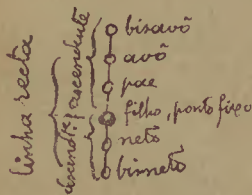 linha recta
ascendente
descend.te
bisavô
avô
pae
filho, ponto fixo
neto
bisneto